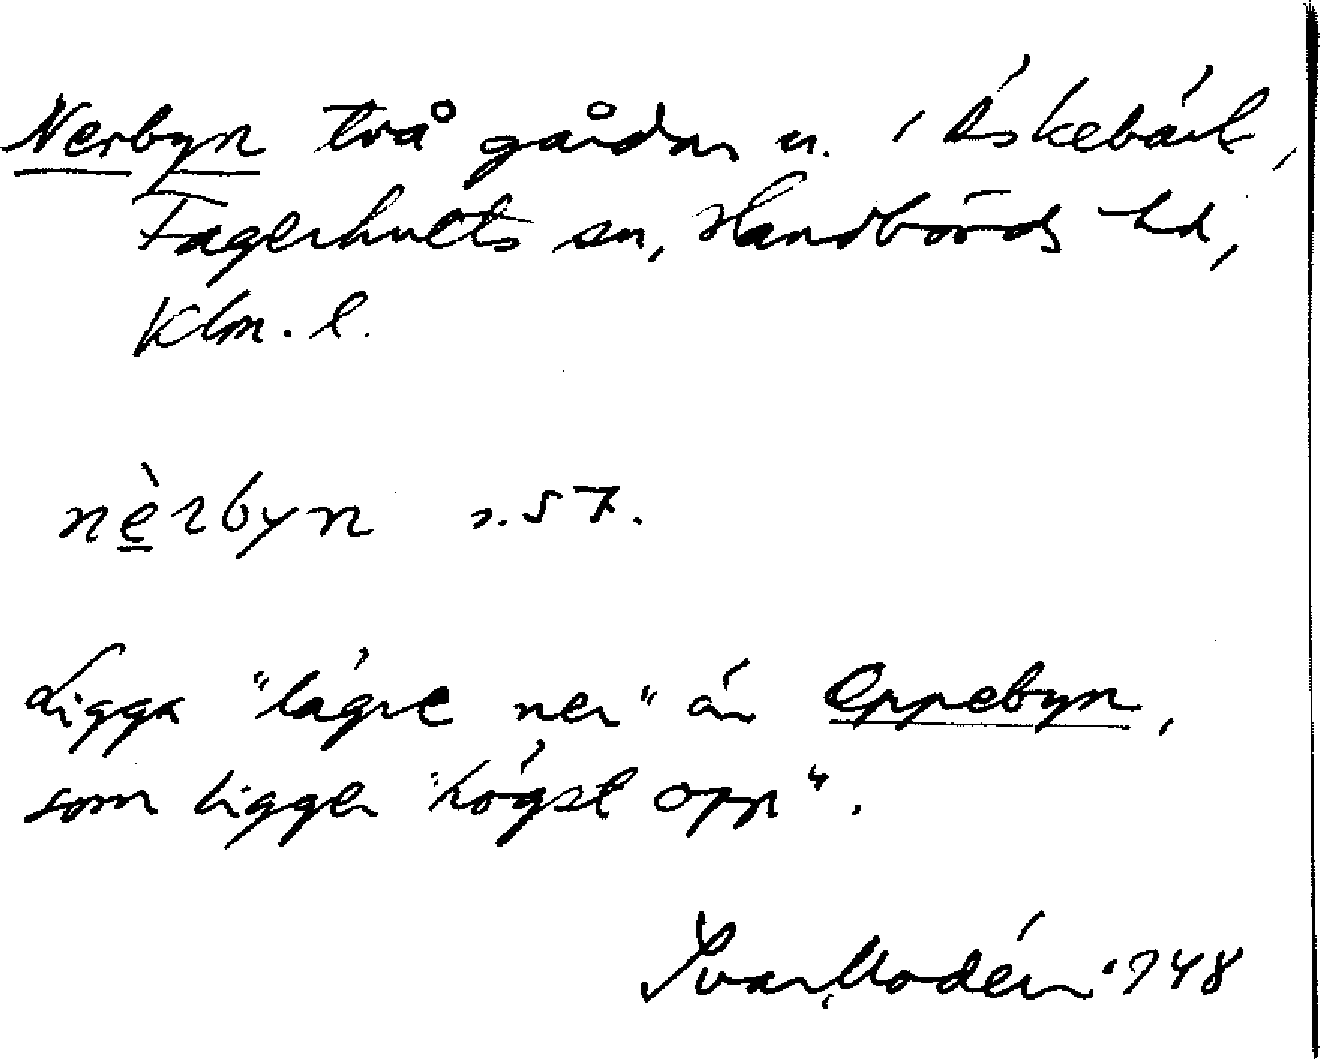 Nerbyn två gårdar u. i Äskebäck,
Fagerhults sn, Handbörds hd,
Klm. l.
nèrbyn s. 57.
Ligga "lägre ner" än Oppebyn,
som ligger "högst opp".
Ivar Modéer 1948